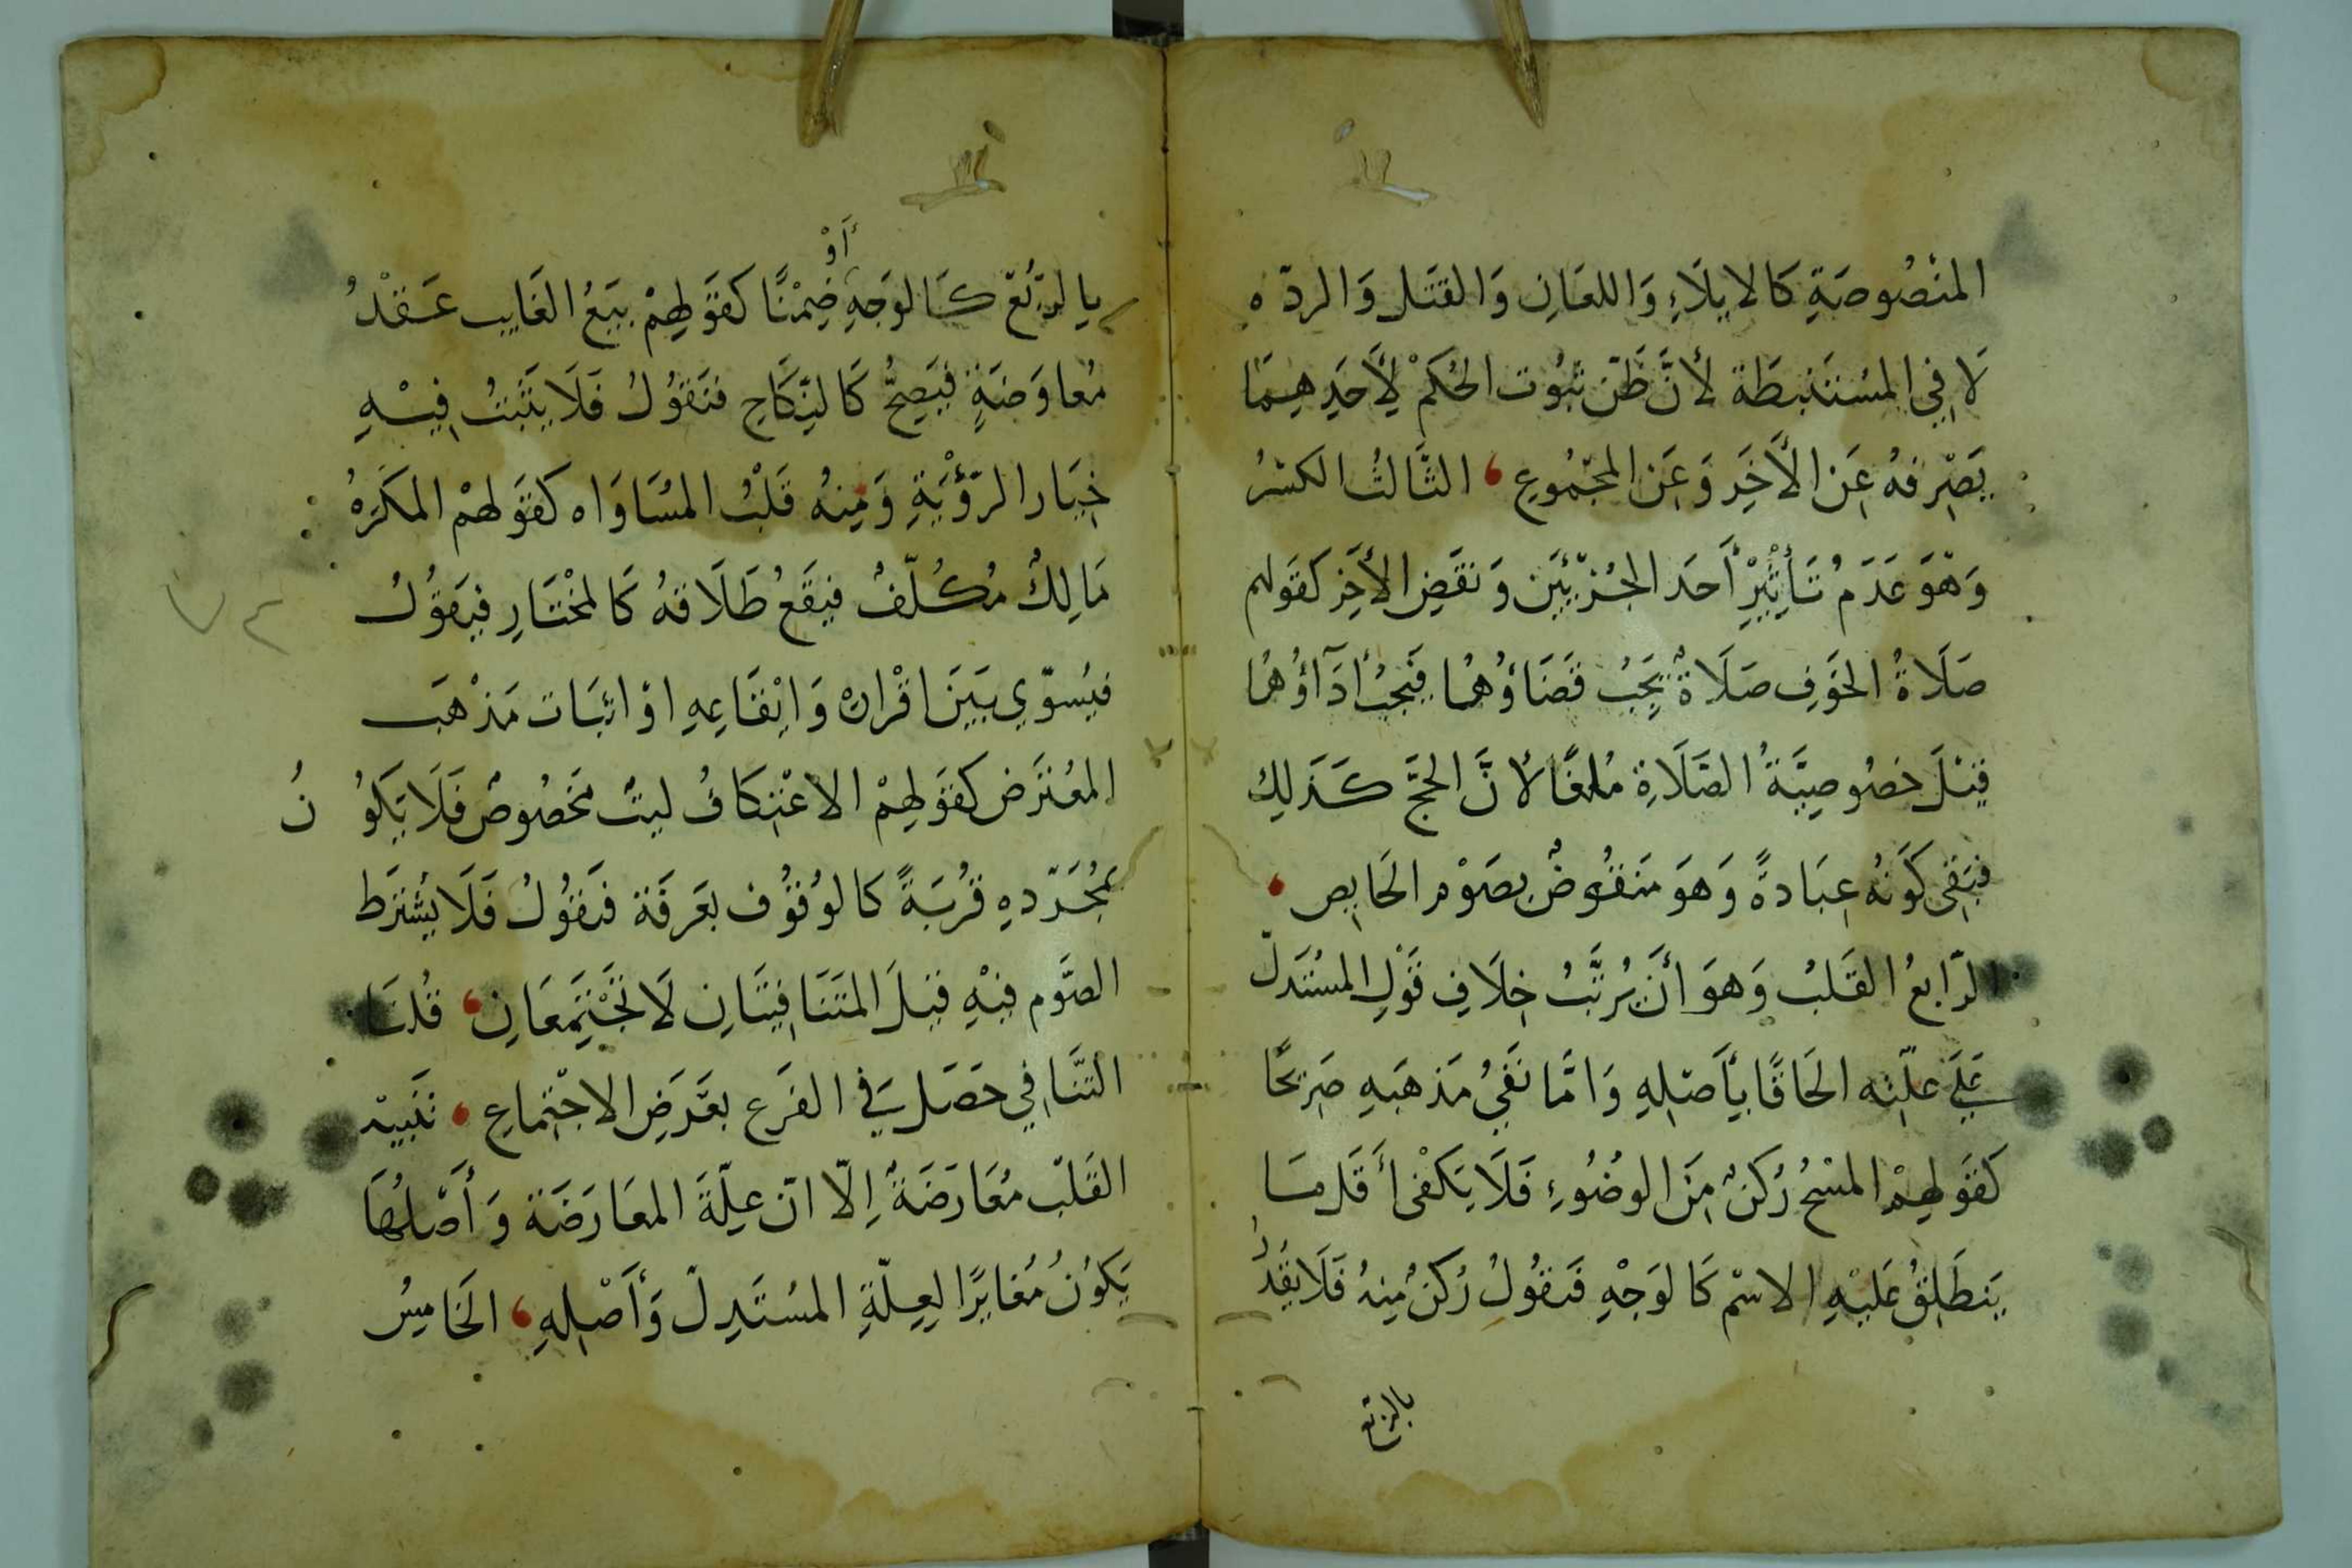 المنْصُوصَةِ كَالايلَاءِ وَاللعَانِ وَالقتَل وَالردّه
لَا فِي المسْتَنبطَة لأنَّ ظَنّ ثبُوت الحُكمْ لِأَحَدِهِمَا
يَصْرِفهُ عَن الأَخَر وَعَن المجْمُوع الثَّالثُ الكسْرُ
وَهوَ عَدَمُ تَأثِيْرِ أَحَد الجُزْئيَن وَنقَضِ الأَخَر كقَولهم
صَلَاةُ الخَوَفِ صَلَاةٌ يَجِبُ قَضَاؤُهُا فيَجبُ أدَآاؤُهُا
قيْلَ خصُوصِيَّةُ الصَّلَاةِ مُلغًا لأنَّ الحجَّ كَذَلِكَ
فبَقى كَونُه عِبَادةً وَهوَ منَقُوضٌ بصَوْم الحَايِض
الرّابعُ القَلبُ وَهوَ أنَ يُرتَّبُ خِلَافِ قَوْلِ المسُتَدلّ
عَلَى علّتِه الحَاقًا بأَصْلِهِ وَامَّا نَفَيُ مَذهَبَهِ صَرِيحًا
كَقَولِهمْ المسْحُ رُكنٌ مِنَ الوضُوءِ فَلَا يَكفْى أَقَل مَا
يَنطَلِقُ عَليْهِ الاسْم كَالوَجْهِ فَنقُولُ رُكنٌ مِنهُ فَلَا يقَدَّرُ
بالربع
بالربُع كَالوَجهِ أَوْ ضِمْنًا كقَولهِمْ بيَعُ الغَايِب عَقْدُ
مُعاوَضَةٍ فيَصِحُّ كَالنِّكَاحِ فنَقُولُ فَلَا يَثَبتُ فِيْهِ
خِيَار الرّؤْيَةِ وَمِنهُ قَلْبُ المسَاوَاه كقَولهمْ المكَرهُ
مَالِكٌ مُكُلّفٌ فيَقَعُ طَلَاقهُ كَالمخْتَارِ فيَقوُلُ
فيُسوّي بَيَنَ اقْرارِهْ وَايْقَاعِهِ اوْ اثبَات مَذْهَب
المعُترَض كقَولِهِمْ الاعْتِكَافُ لبثٌ مَخصُوصٌ فَلَا يَكوُنُ
بمُجَرّدهِ قُربَةً كَالوُقوُف بعَرفَة فنَقوُلُ فَلَا يشُترَط
الصَّوم فيْهِ قيْلَ المتنَافيَتَانِ لَا تجْتَمِعَانِ قُلنَا
التنَّافي حَصَل في الفَرع بعَرَضِ الاجْتِماعِ تنَبيْه
القَلبْ مُعَارَضَةٌ إلّا انّ علّةَ المعَارَضَة وَأَصْلُهَا
يَكوُنُ مُغايرًا لِعِلّةِ المسُتَدِلّ وَأَصْلِهِ الخَامِسُ